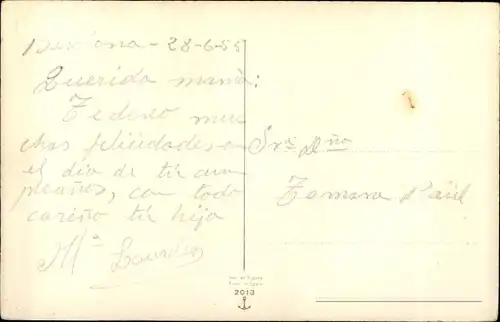 28-6-55
Querida mamá:
Te deseo mu
chas felicidades
el dia de tu cum
pleaños, con todo
cariño tu hija
Mª Lourdes
Srª Dña
2013